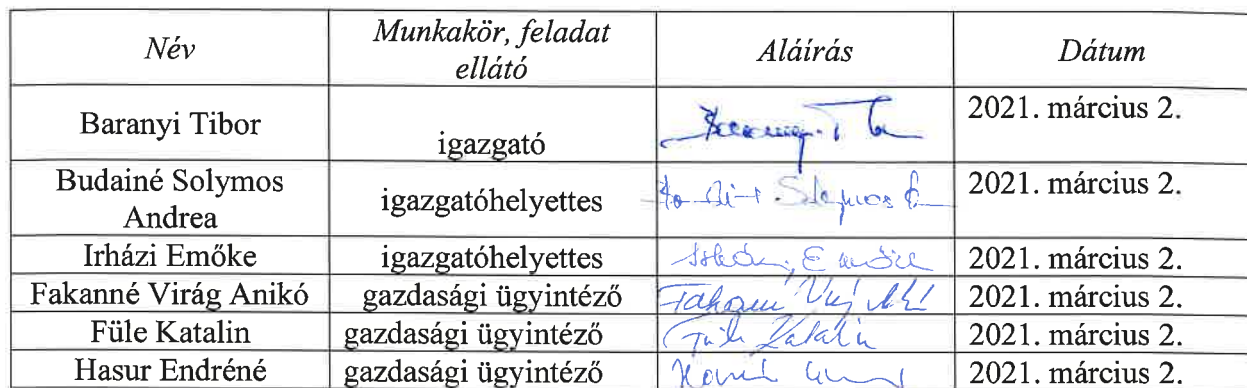 Név Munkakör, feladat Aláírás Dátum
ellátó
Baranyi Tibor igazgató 2021. március 2.
Budainé Solymos igazgatóhelyettes 2021. március 2.
Andrea
Irházi Emőke igazgatóhelyettes Emőke 2021. március 2.
Fakanné Virág Anikó gazdasági ügyintéző 2021. március 2.
Füle Katalin gazdasági ügyintéző Füle Katalin 2021. március 2.
Hasur Endréné gazdasági ügyintéző 2021. március 2.